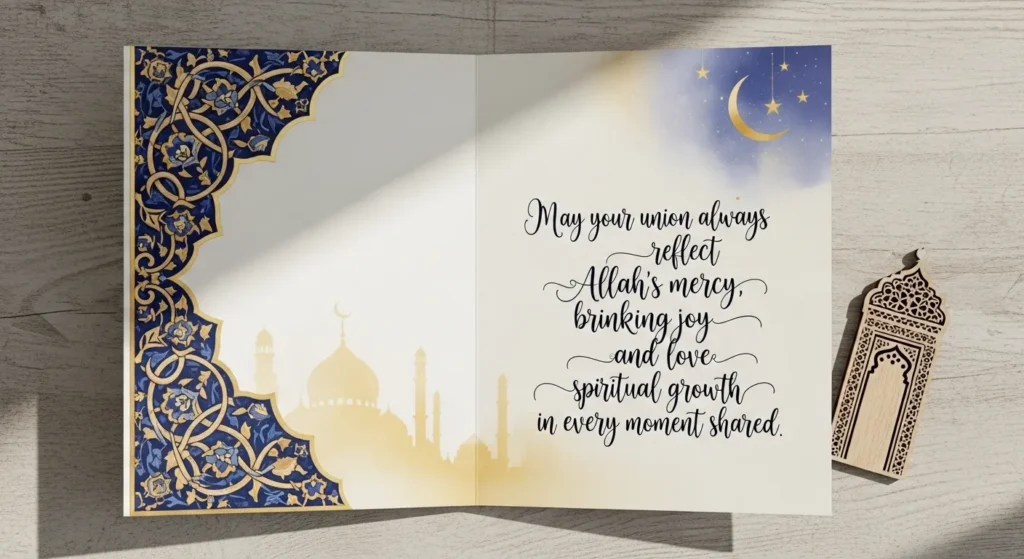 May your union always
reflect
Allah's mercy,
brinking joy
and love
spiritual growth
in every moment shared.